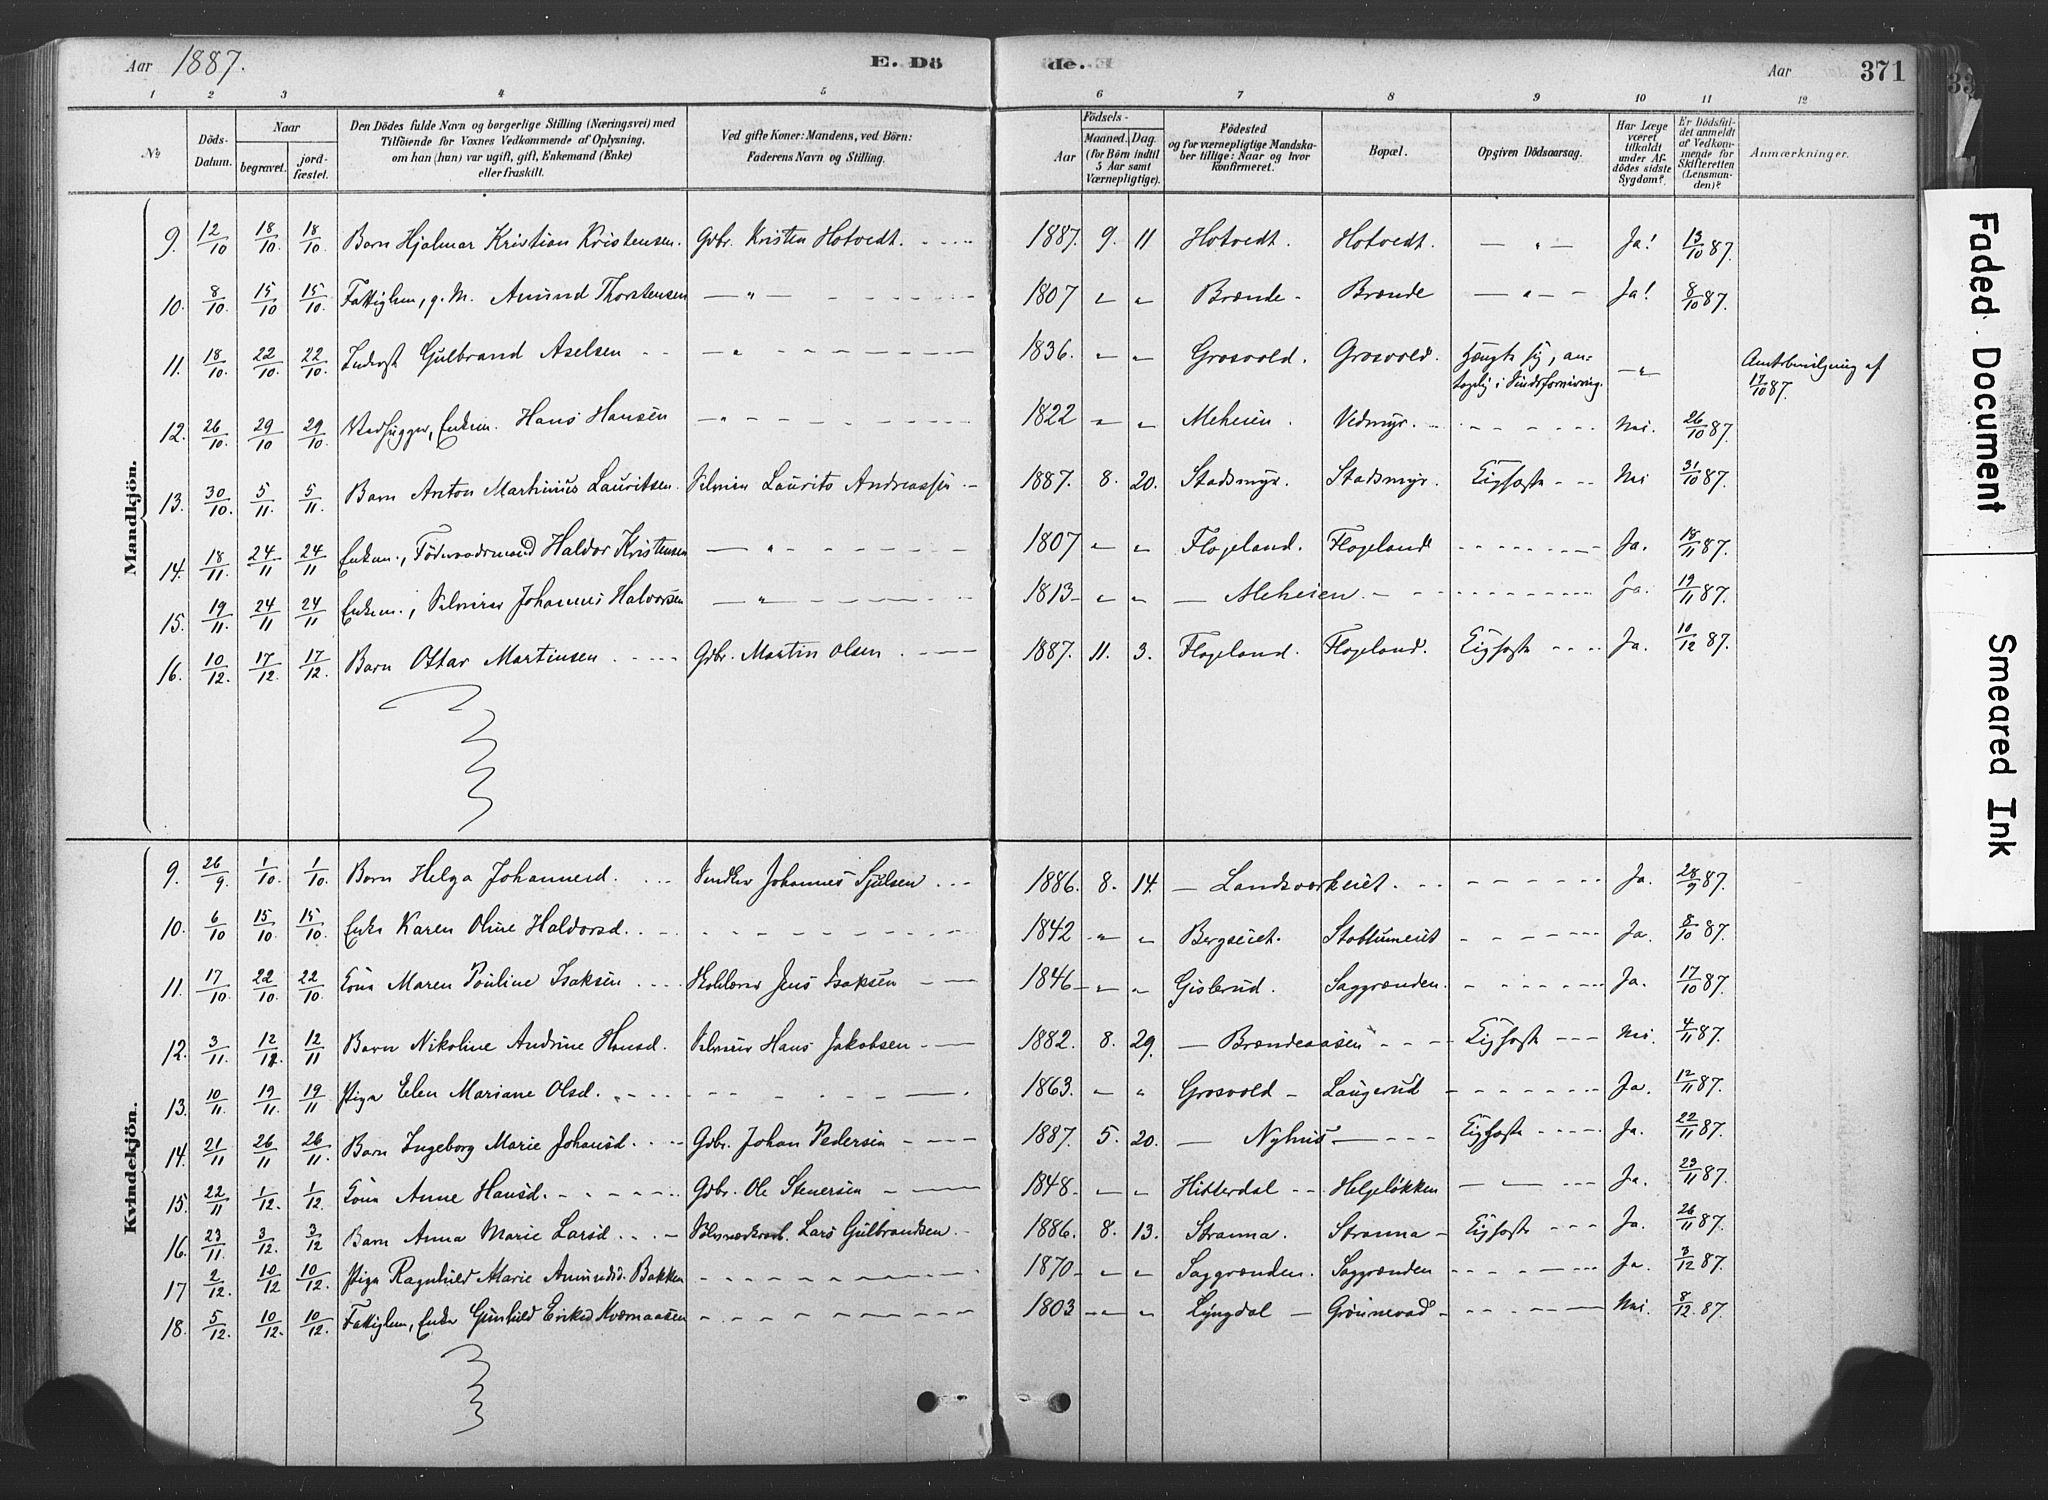 Aar 1887. E. Dö de. Aar 371
1 2 3 4 5 6 7 8 9 10 11 12
No Döds-Datum. Naar begravet. jordfæstet. Den Dödes fulde Navn og borgerlige Stilling (Næringsvei) med Tilföiende for Voxnes Vedkommende af Oplysning, om han (hun) var ugift, gift, Enkemand (Enke) eller fraskilt. Ved gifte Koner: Mandens, ved Börn: Faderens Navn og Stilling. Födsels- Aar Maaned. Dag. (for Börn indtil 5 Aar samt Værnepligtige). Födested og for værnepligtige Mandskaber tillige: Naar og hvor konfirmeret. Bopæl. Opgiven Dödsaarsag. Har Læge været tilkaldt under Afdödes sidste Sygdom? Er Dödsfaldet anmeldt af Vedkommende for Skifteretten (Lensmanden)? Anmærkninger.
Mandkjön.
9. 12/10 18/10. 18/10 Barn Hjalmar Kristian Kristensen. Gdbr. Kristen Hotvedt. 1887. 9. 11 Hotvedt. Hotvedt. — " — Ja! 13/10 87.
10. 8/10. 15/10 15/10. Fattiglem, g. M. Amund Thorstensen — " — 1807 " " Brænde - Brænde — " — Ja! 8/10 87.
11. 18/10. 22/10. 22/10. Inderst Gulbrand Aselsen — " 1836. " " Grosvold. Grosvold. Hængte sig, antagelig i Sindsforvirring. — " Amtsbevilgning af 17/10 87.
12. 26/10. 29/10 29/10. Vedhugger, Enkem. Hans Hansen — " 1822 " " Meheien. Vedmyr. Nei. 26/10 87.
13. 30/10. 5/11. 5/11. Barn Anton Martinius Lauritsen. Selveier Laurits Andreassen 1887. 8. 20. Stadsmyr. Stadsmyr. Eighoste Nei 31/10 87.
14. 18/11. 24/11 24/11 Enkem., Föderaadsmand Haldor Kristensen — " 1807 " " Flogeland. Flogeland Ja. 18/11 87.
15. 19/11. 24/11 24/11 Enkem., Selveier Johannes Halvorsen — " 1813 " " — Meheien — Ja. 19/11 87.
16. 10/12. 17/12. 17/12. Barn Ottar Martinsen Gdbr. Martin Olsen 1887. 11. 3. Flogeland. Flogeland. Eighoste Ja. 10/12 87.
Kvindekjön.
9. 26/9. 1/10. 1/10. Barn Helga Johannesd. Johannes Sjulsen 1886. 8. 14. — Landsverkeiet. Ja. 28/9 87.
10. 6/10 15/10. 15/10. Enke Karen Oline Haldorsd. 1842 " " Bergseiet. Stobtumeiet Ja. 8/10 87.
11. 17/10 22/10. 22/10. Kona Maren Pauline Isaksen Jens Isaksen 1846 " " Gislerud. Saggrænden. Ja. 17/10 87.
12. 3/11. 12/12. 12/11 Barn Nikoline Andrine Hansd. Selveier Hans Jakobsen 1882. 8. 29. — Brændeaasen Eighoste Nei. 4/11 87.
13. 10/11. 19/11. 19/11 Pige Elen Mariane Olsd. 1863. " " Grosvold - Laugerud Ja. 12/11 87.
14. 21/11 26/11 26/11. Barn Ingeborg Marie Johansd. Gdbr. Johan Pedersen 1887. 5. 20. — Nyhus — Eighoste Ja. 22/11 87.
15. 22/11 1/12. 1/12. Kona Anne Hansd. Gdbr. Ole Stenersen 1848 " " Hitterdal Helgeløkken Ja. 23/11 87.
16. 23/11. 3/12. 3/12 Barn Anna Marie Larsd. Lars Gulbrandsen 1886. 8. 13. Stranna. Stranna - Eighoste Ja. 26/11 87.
17 2/12. 10/12 10/12. Pige Ragnhild Marie Amundsd. Bakken 1870 " " Saggrænden. Saggrænden Ja. 3/12 87.
18. 5/12. 10/12. 10/12. Fattiglem, Enke Gunhild Eriksd. Kværnaasen 1803 " " Lyngdal — Grønnevad Nei. 8/12 87.
Faded Document
Smeared Ink